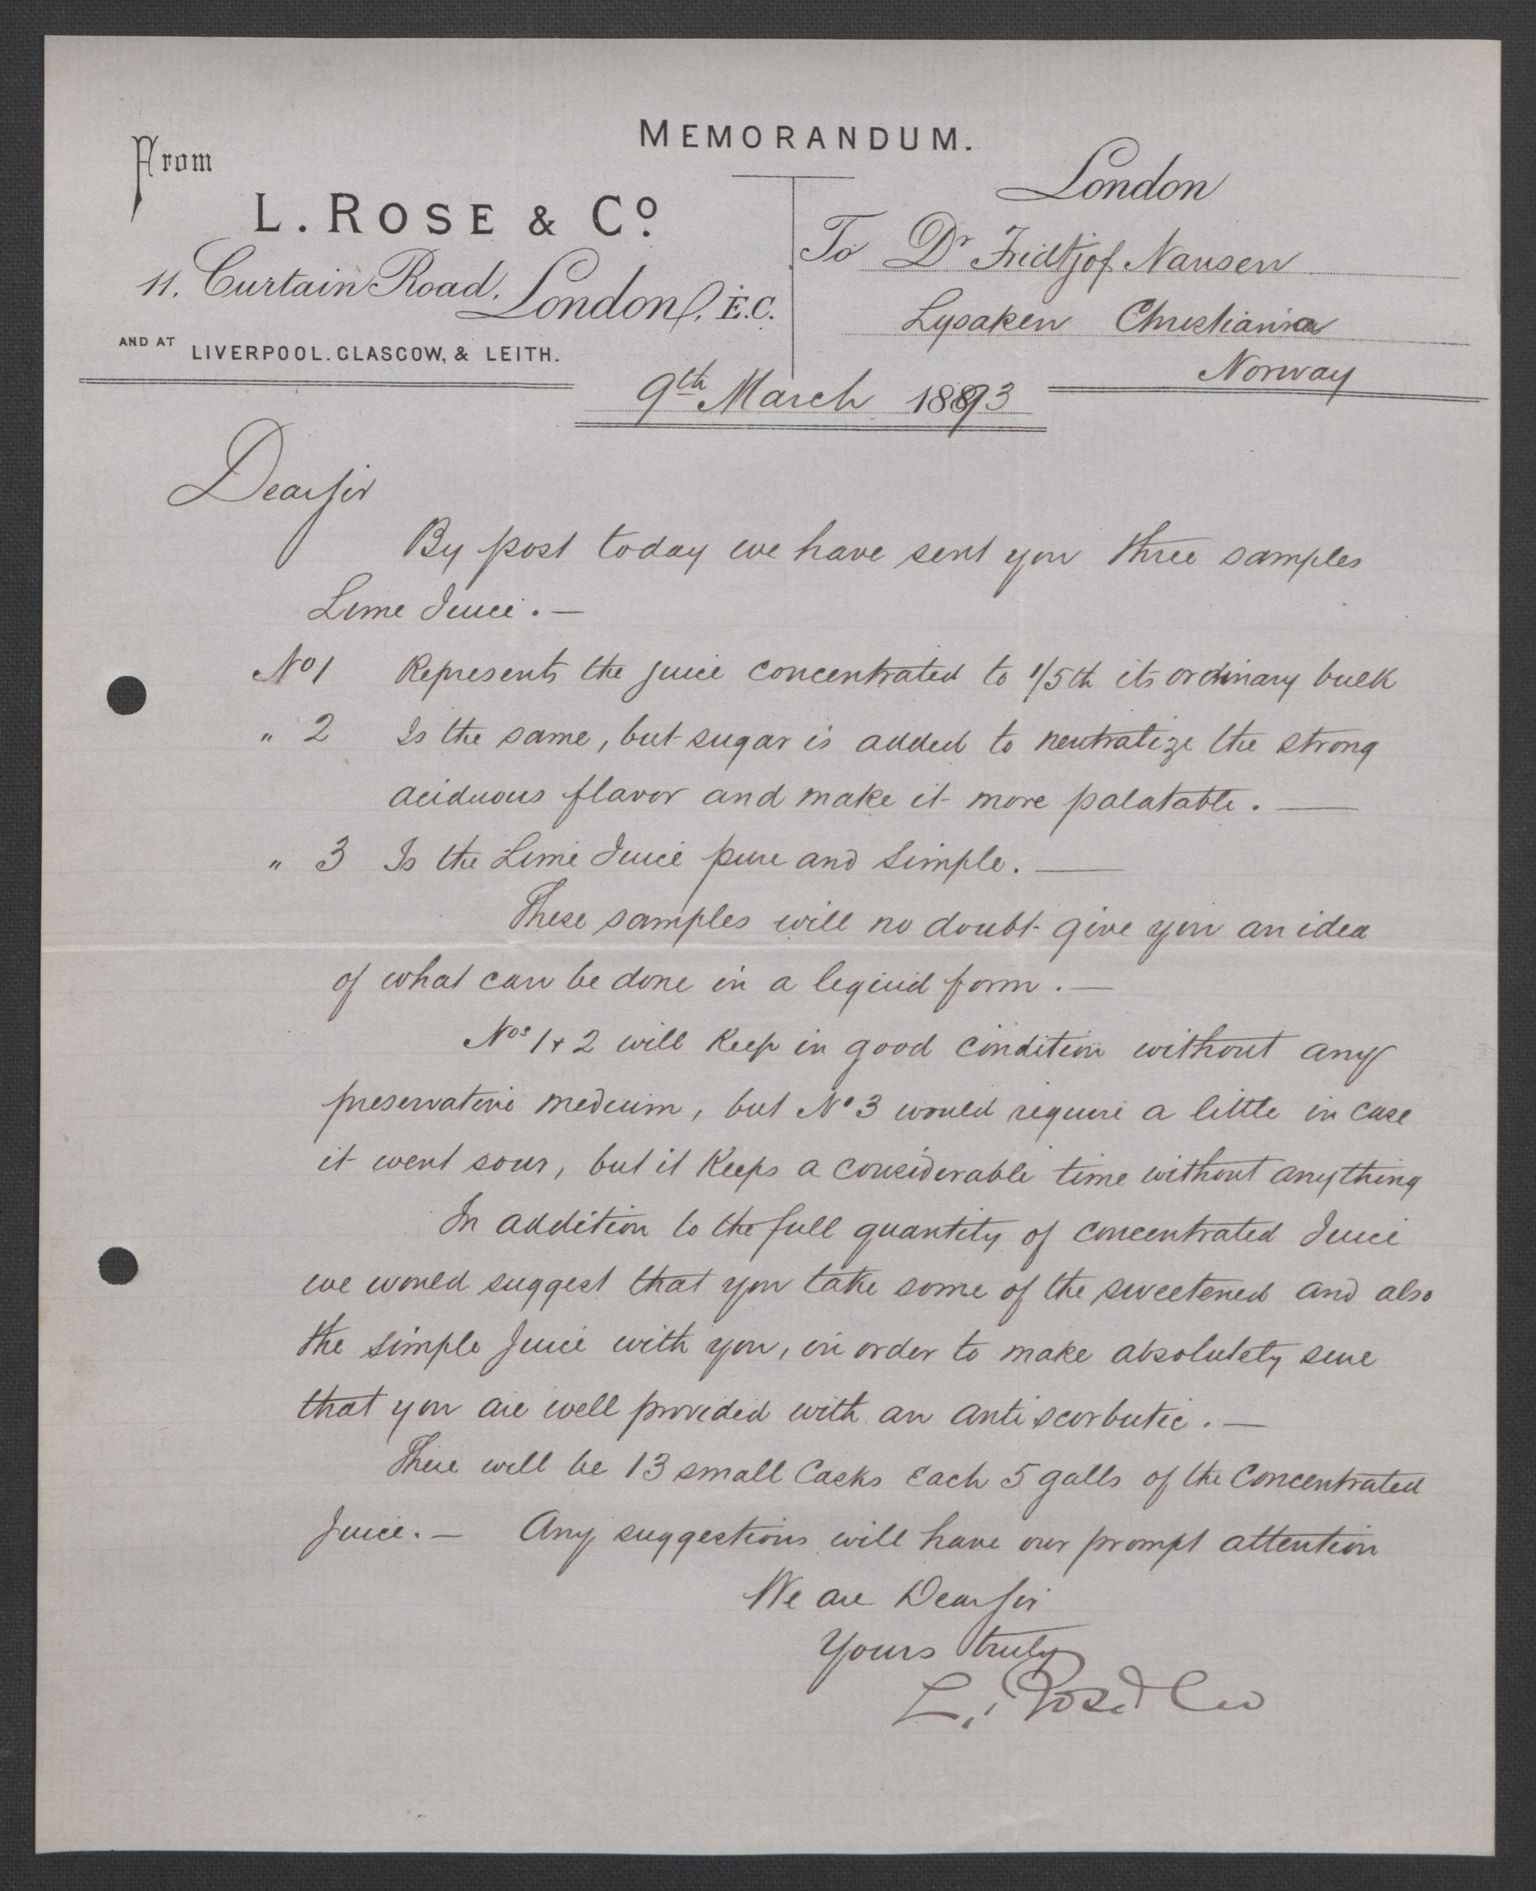 MEMORANDUM.
From
L. ROSE & Co.
11. Curtain Road, London, E.C.
AND AT LIVERPOOL. GLASGOW, & LEITH.
London
To Dr Fridtjof Nansen
Lysaken Christiania
Norway
9th March 1893
Dear Sir
By post today we have sent you three samples
Lime Juice. —
No 1 Represents the juice concentrated to 1/5th its ordinary bulk
" 2 Is the same, but sugar is added to neutralize the strong
aciduous flavor and make it more palatable. —
" 3 Is the Lime Juice pure and simple. —
These samples will no doubt give you an idea
of what can be done in a lequid form. —
Nos 1 & 2 will keep in good condition without any
preservative medium, but No 3 would require a little in case
it went sour, but it keeps a considerable time without anything
In addition to the full quantity of concentrated Juice
we would suggest that you take some of the sweetened and also
the simple Juice with you, in order to make absolutely sure
that you are well provided with an anti scorbutic. —
There will be 13 small Casks each 5 galls of the concentrated
Juice. — Any suggestions will have our prompt attention
We are Dear Sir
Yours truly
L. Rose & Co